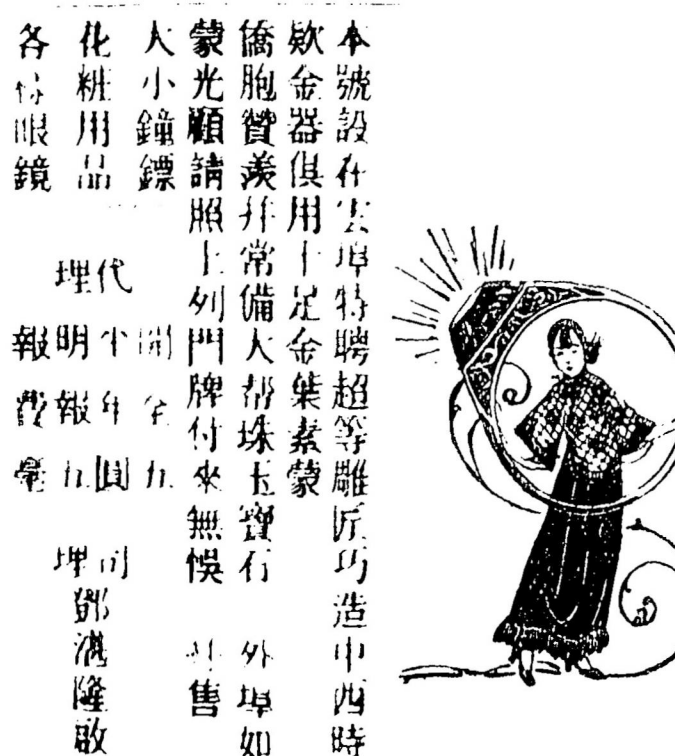 本號設在雲埠特聘超等雕匠巧造中西時
欵金器俱用十足金葉素蒙
僑胞贊羨并常備大帮珠玉寶石 外埠如
蒙光顧請照上列門牌付來無悞 并售
大小鐘鏢
化粧用品
各樣眼鏡
代理
開平明報
全年報費
五圓五毫
司理
鄧隆啟